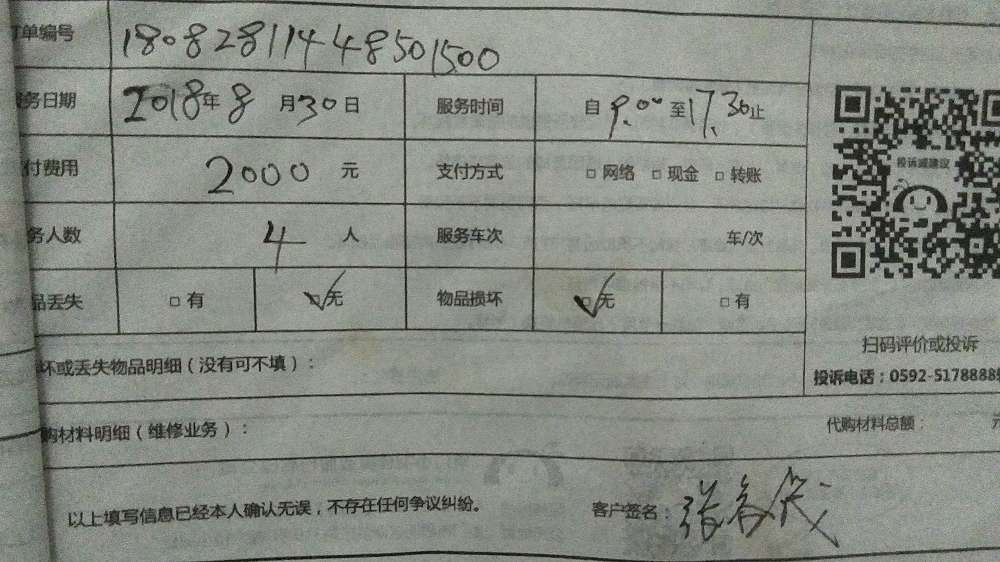 订单编号 180828114448501500
服务日期 2018年8月30日 服务时间 自9.00至17.30止
付费用 2000元 支付方式 □网络 □现金 □转账
务人数 4人 服务车次 车/次
品丢失 □有 ☑无 物品损坏 ☑无 □有
投诉或建议
扫码评价或投诉
投诉电话：0592-5178888
坏或丢失物品明细（没有可不填）：
购材料明细（维修业务）： 代购材料总额： 元
以上填写信息已经本人确认无误，不存在任何争议纠纷。 客户签名：张